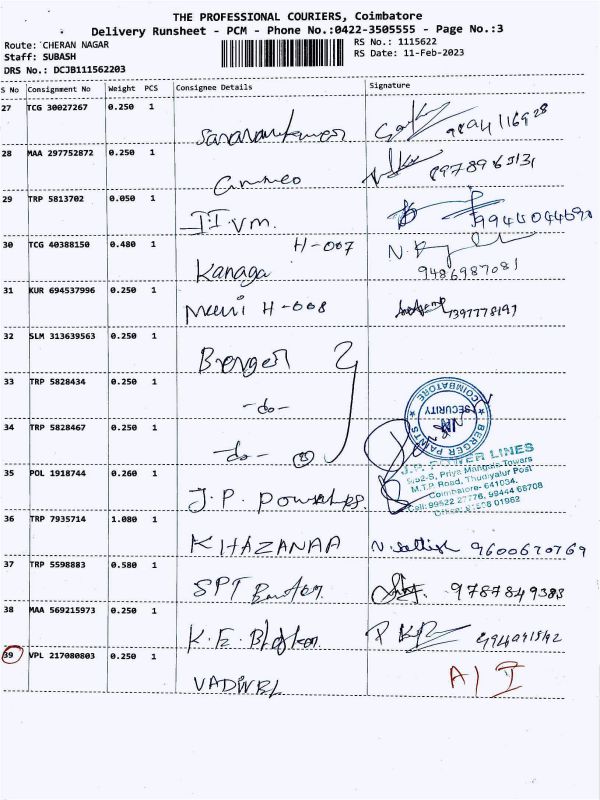 THE PROFESSIONAL COURIERS, Coimbatore
Delivery Runsheet - PCM - Phone No.:0422-3505555 - Page No.:3
Route: CHERAN NAGAR
RS No.: 1115622
Staff: SUBASH
RS Date: 11-Feb-2023
DRS No.: DCJB111562203
S No Consignment No Weight PCS Consignee Details Signature
27 TCG 30027267 0.250 1
28 MAA 297752872 0.250 1
8978965131
29 TRP 5813702 0.050 1
II VM. 9944044690
30 TCG 40388150 0.480 1 H-007
Kanaga 9486987081
31 KUR 694537996 0.250 1
H-008 7397778197
32 SLM 313639563 0.250 1
Berger
33 TRP 5828434 0.250 1
-do-
34 TRP 5828467 0.250 1
-do-
BERGER PAINTS
COIMBATORE
SECURITY
35 POL 1918744 0.260 1
J.P.
J.P. POWER LINES
5/52-S, Priya Mangala Towers
M.T.P. Road, Thudiyalur Post
Coimbatore- 641034.
Cell: 99522 27776, 99444 68708
36 TRP 7935714 1.080 1
KHAZANAA N. Sathish 9600670769
37 TRP 5598883 0.580 1
SPT 9787849383
38 MAA 569215973 0.250 1
K.E.
39 VPL 217080803 0.250 1
VADIVEL A/I